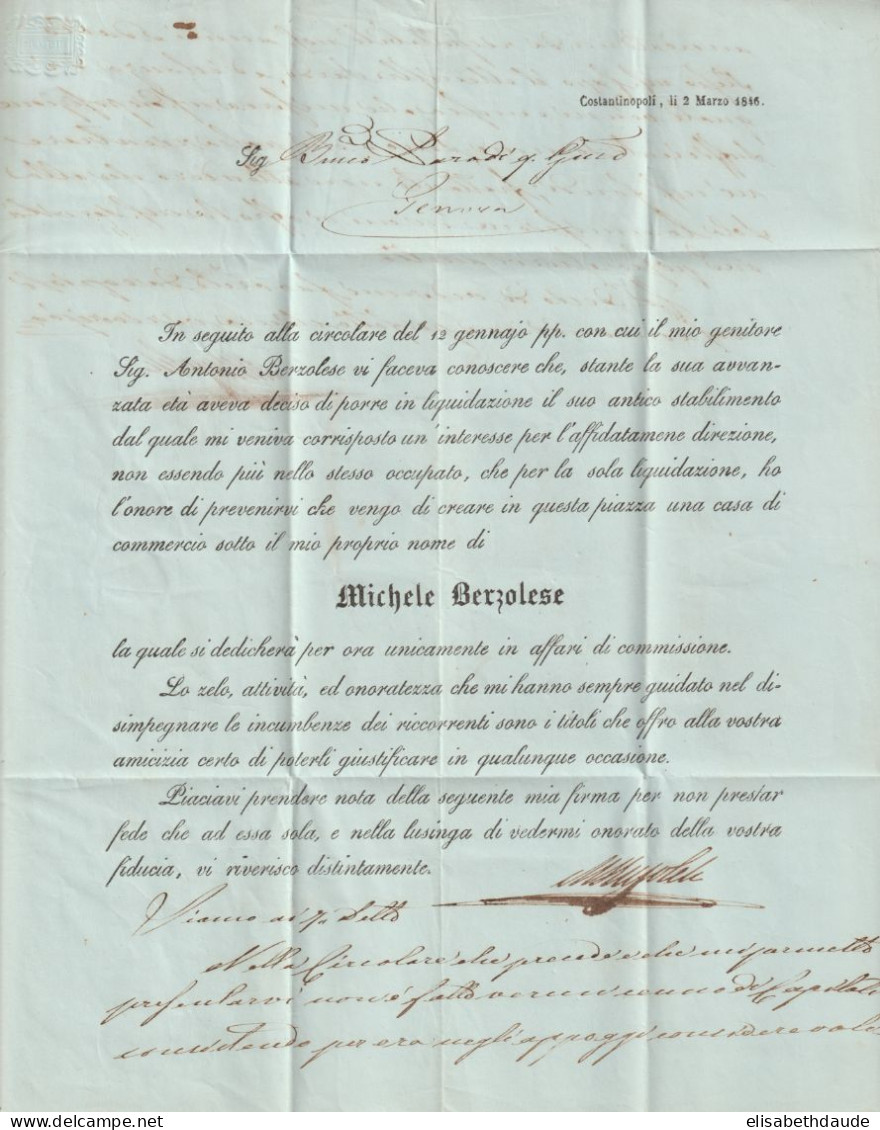 Costantinopoli, li 2 Marzo 1846.
Sig
Genova
In seguito alla circolare del 12 gennajo pp. con cui il mio genitore
Sig. Antonio Berzolese vi faceva conoscere che, stante la sua avvan-
zata età aveva deciso di porre in liquidazione il suo antico stabilimento
dal quale mi veniva corrisposto un' interesse per l'affidatamene direzione,
non essendo più nello stesso occupato, che per la sola liquidazione, ho
l'onore di prevenirvi che vengo di creare in questa piazza una casa di
commercio sotto il mio proprio nome di
Michele Berzolese
la quale si dedicherà per ora unicamente in affari di commissione.
Lo zelo, attività, ed onoratezza che mi hanno sempre guidato nel di-
simpegnare le incumbenze dei riccorrenti sono i titoli che offro alla vostra
amicizia certo di poterli giustificare in qualunque occasione.
Piaciavi prendere nota della seguente mia firma per non prestar
fede che ad essa sola, e nella lusinga di vedermi onorato della vostra
fiducia, vi riverisco distintamente.
Siamo ai 7 detto
Nella Circolare che precede e che mi permetto
presentarvi non è fatto verun cenno di Capitali
consistendo per ora negli appoggi
elisabethdaude